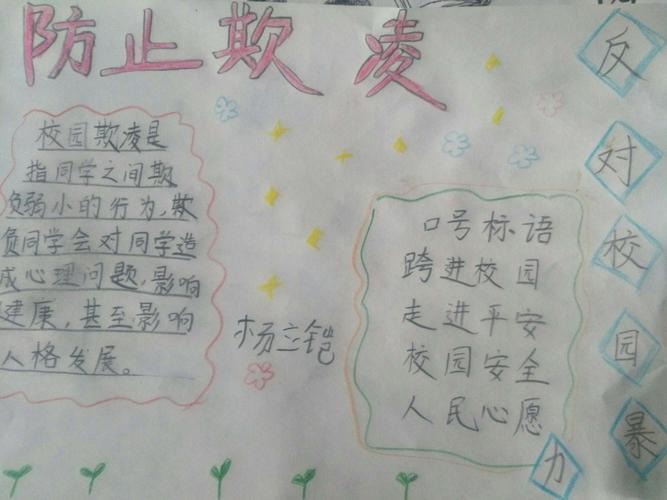 防止欺凌
校园欺凌是
指同学之间期
负弱小的行为,欺
负同学会对同学造
成心理问题,影响
建康,甚至影响
人格发展。
杨立铠
口号标语
跨进校园
走进平安
校园安全
人民心愿
反对校园暴力